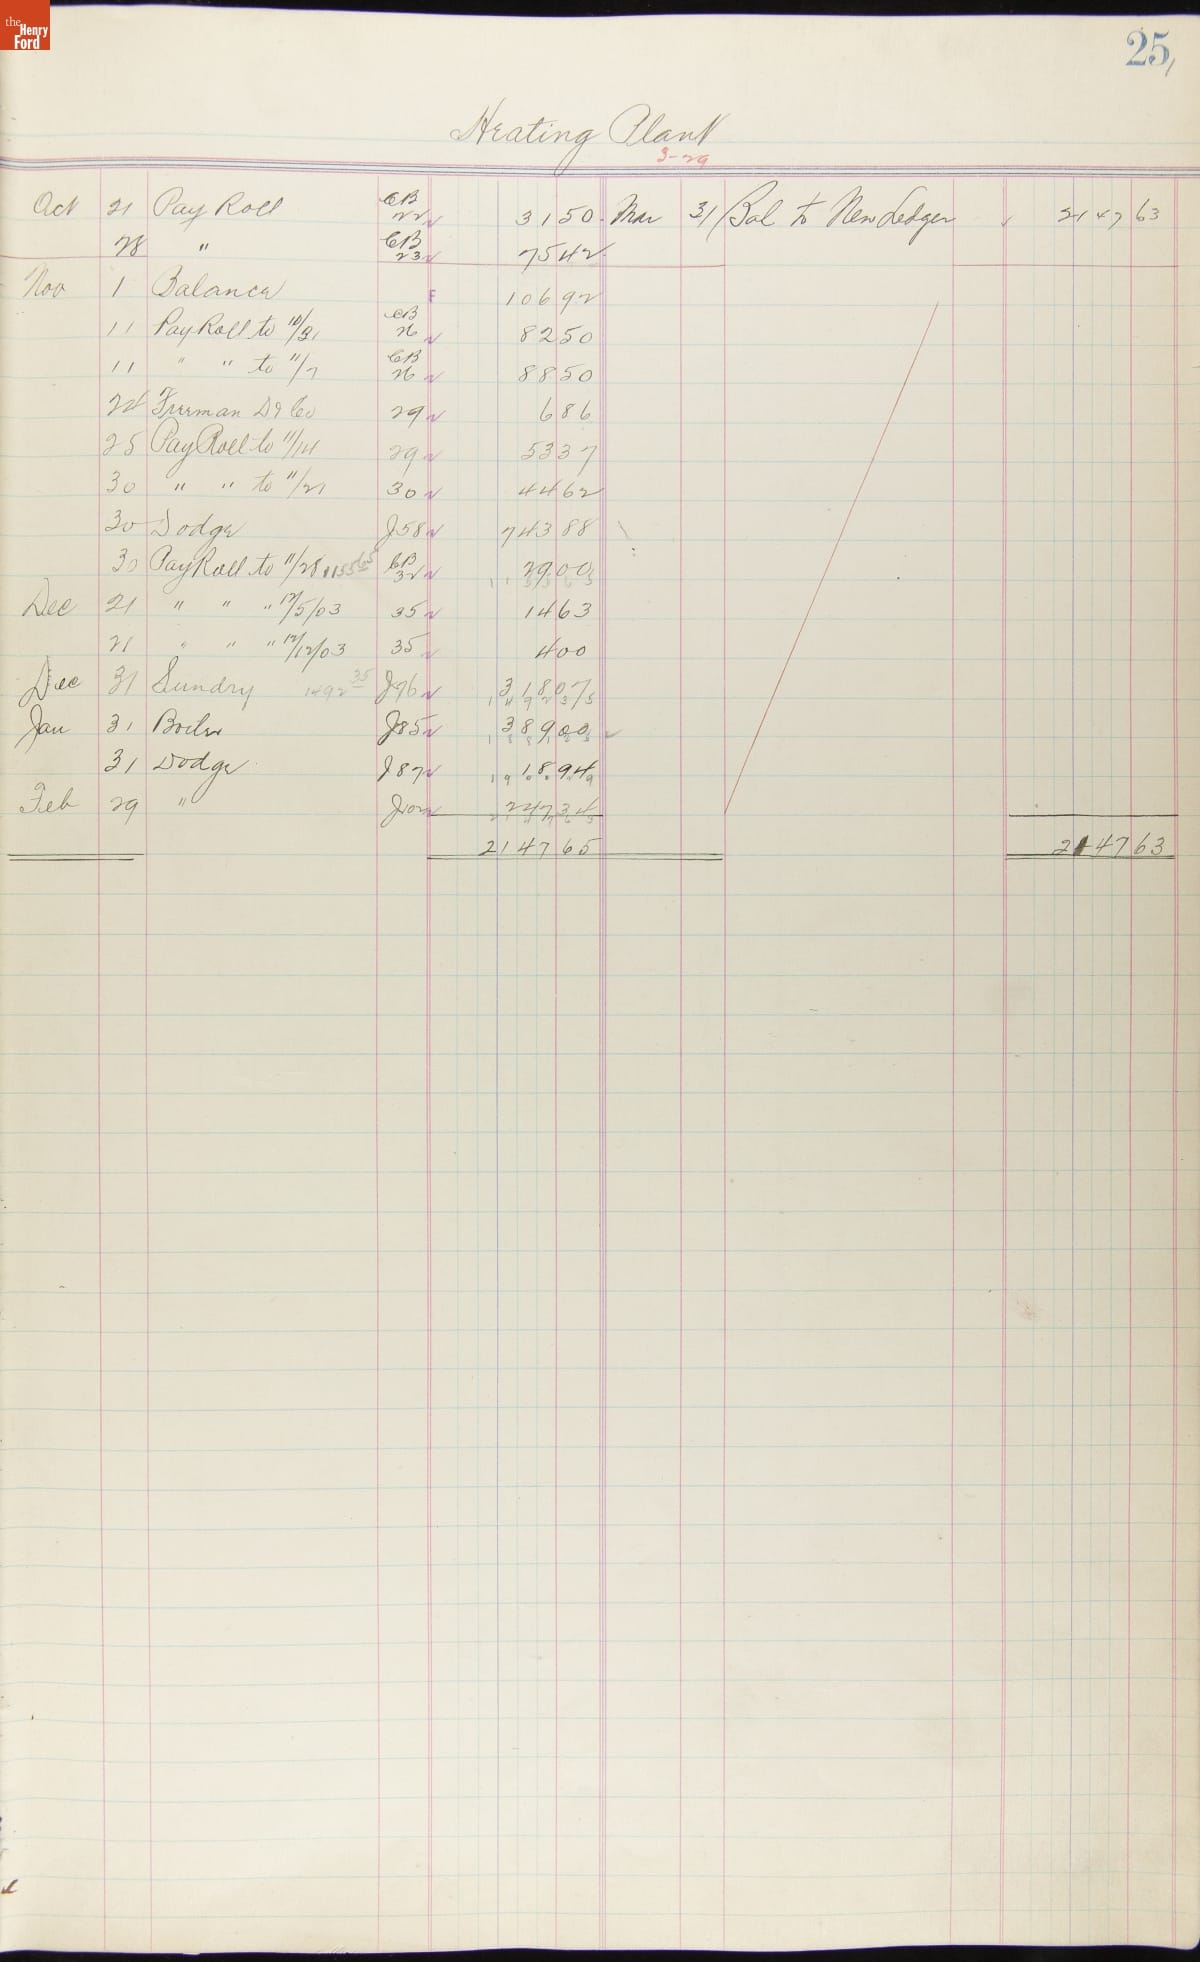 the
Henry
Ford
25
Heating Plant
3-29
Oct 21 Pay Roll CB 22 31 50 Mar 31 Bal to New Ledger 2147 63
28 " CB 23 75 42
Nov 1 Balance 106 92
11 Pay Roll to 10/31 CB 26 82 50
11 " " to 11/7 CB 26 88 50
24 Furman Dr Co 29 6 86
25 Pay Roll to 11/14 29 53 37
30 " " to 11/21 30 44 62
30 Dodge J58 743 88
30 Pay Roll to 11/28 1155 65 CB 32 29 00
Dec 21 " " " 12/5/03 35 14 63
21 " " " 12/12/03 35 4 00
Dec 31 Sundry 1492 35 J76 318 07
Jan 31 Boiler J85 389 00
31 Dodge J87 18 94
Feb 29 " J102 247 34
2147 65 2147 63